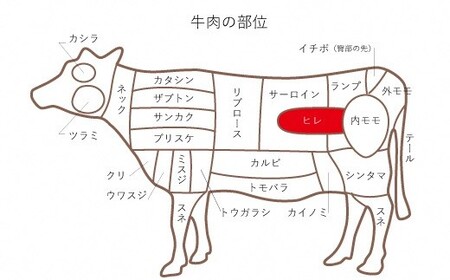 牛肉の部位
カシラ
イチボ（臀部の先）
ネック
カタシン
ザブトン
サンカク
ブリスケ
リブロース
サーロイン
ランプ
外モモ
ヒレ
内モモ
ツラミ
テール
クリ
ウワスジ
ミスジ
カルビ
トモバラ
シンタマ
スネ
トウガラシ
カイノミ
スネ